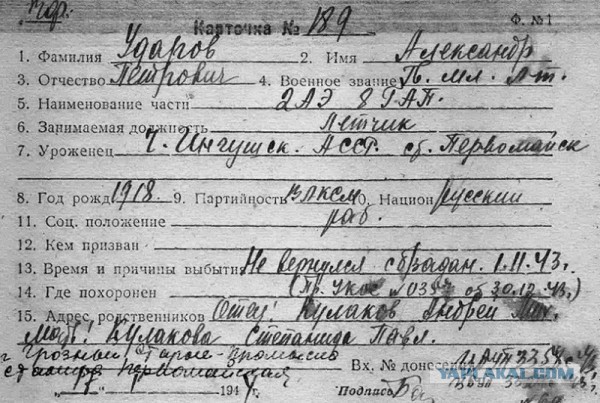 Карточка № 189 Ф. №1
1. Фамилия Ударов 2. Имя Александр
3. Отчество Петрович 4. Военное звание мл. Лт.
5. Наименование части 2 АЭ 8 ГАП.
6. Занимаемая должность Летчик
7. Уроженец Ч. Ингушск. АССР. ст. Первомайск
8. Год рожд 1918. 9. Партийность ВЛКСМ 0. Национ Русский
11. Соц. положение раб.
12. Кем призван
13. Время и причины выбыти Не вернулся с б/задан. 1.11.43 г.
14. Где похоронен (Пр. УКОС №039 от 30.12.43.)
15. Адрес родственников Отец: Кулаков Андрей
Мать: Кулакова Степанида Павл.
г. Грозный, Старые-промысла
станица Первомайская Вх. № донес
194 Подпись
YAPLAKAL.COM